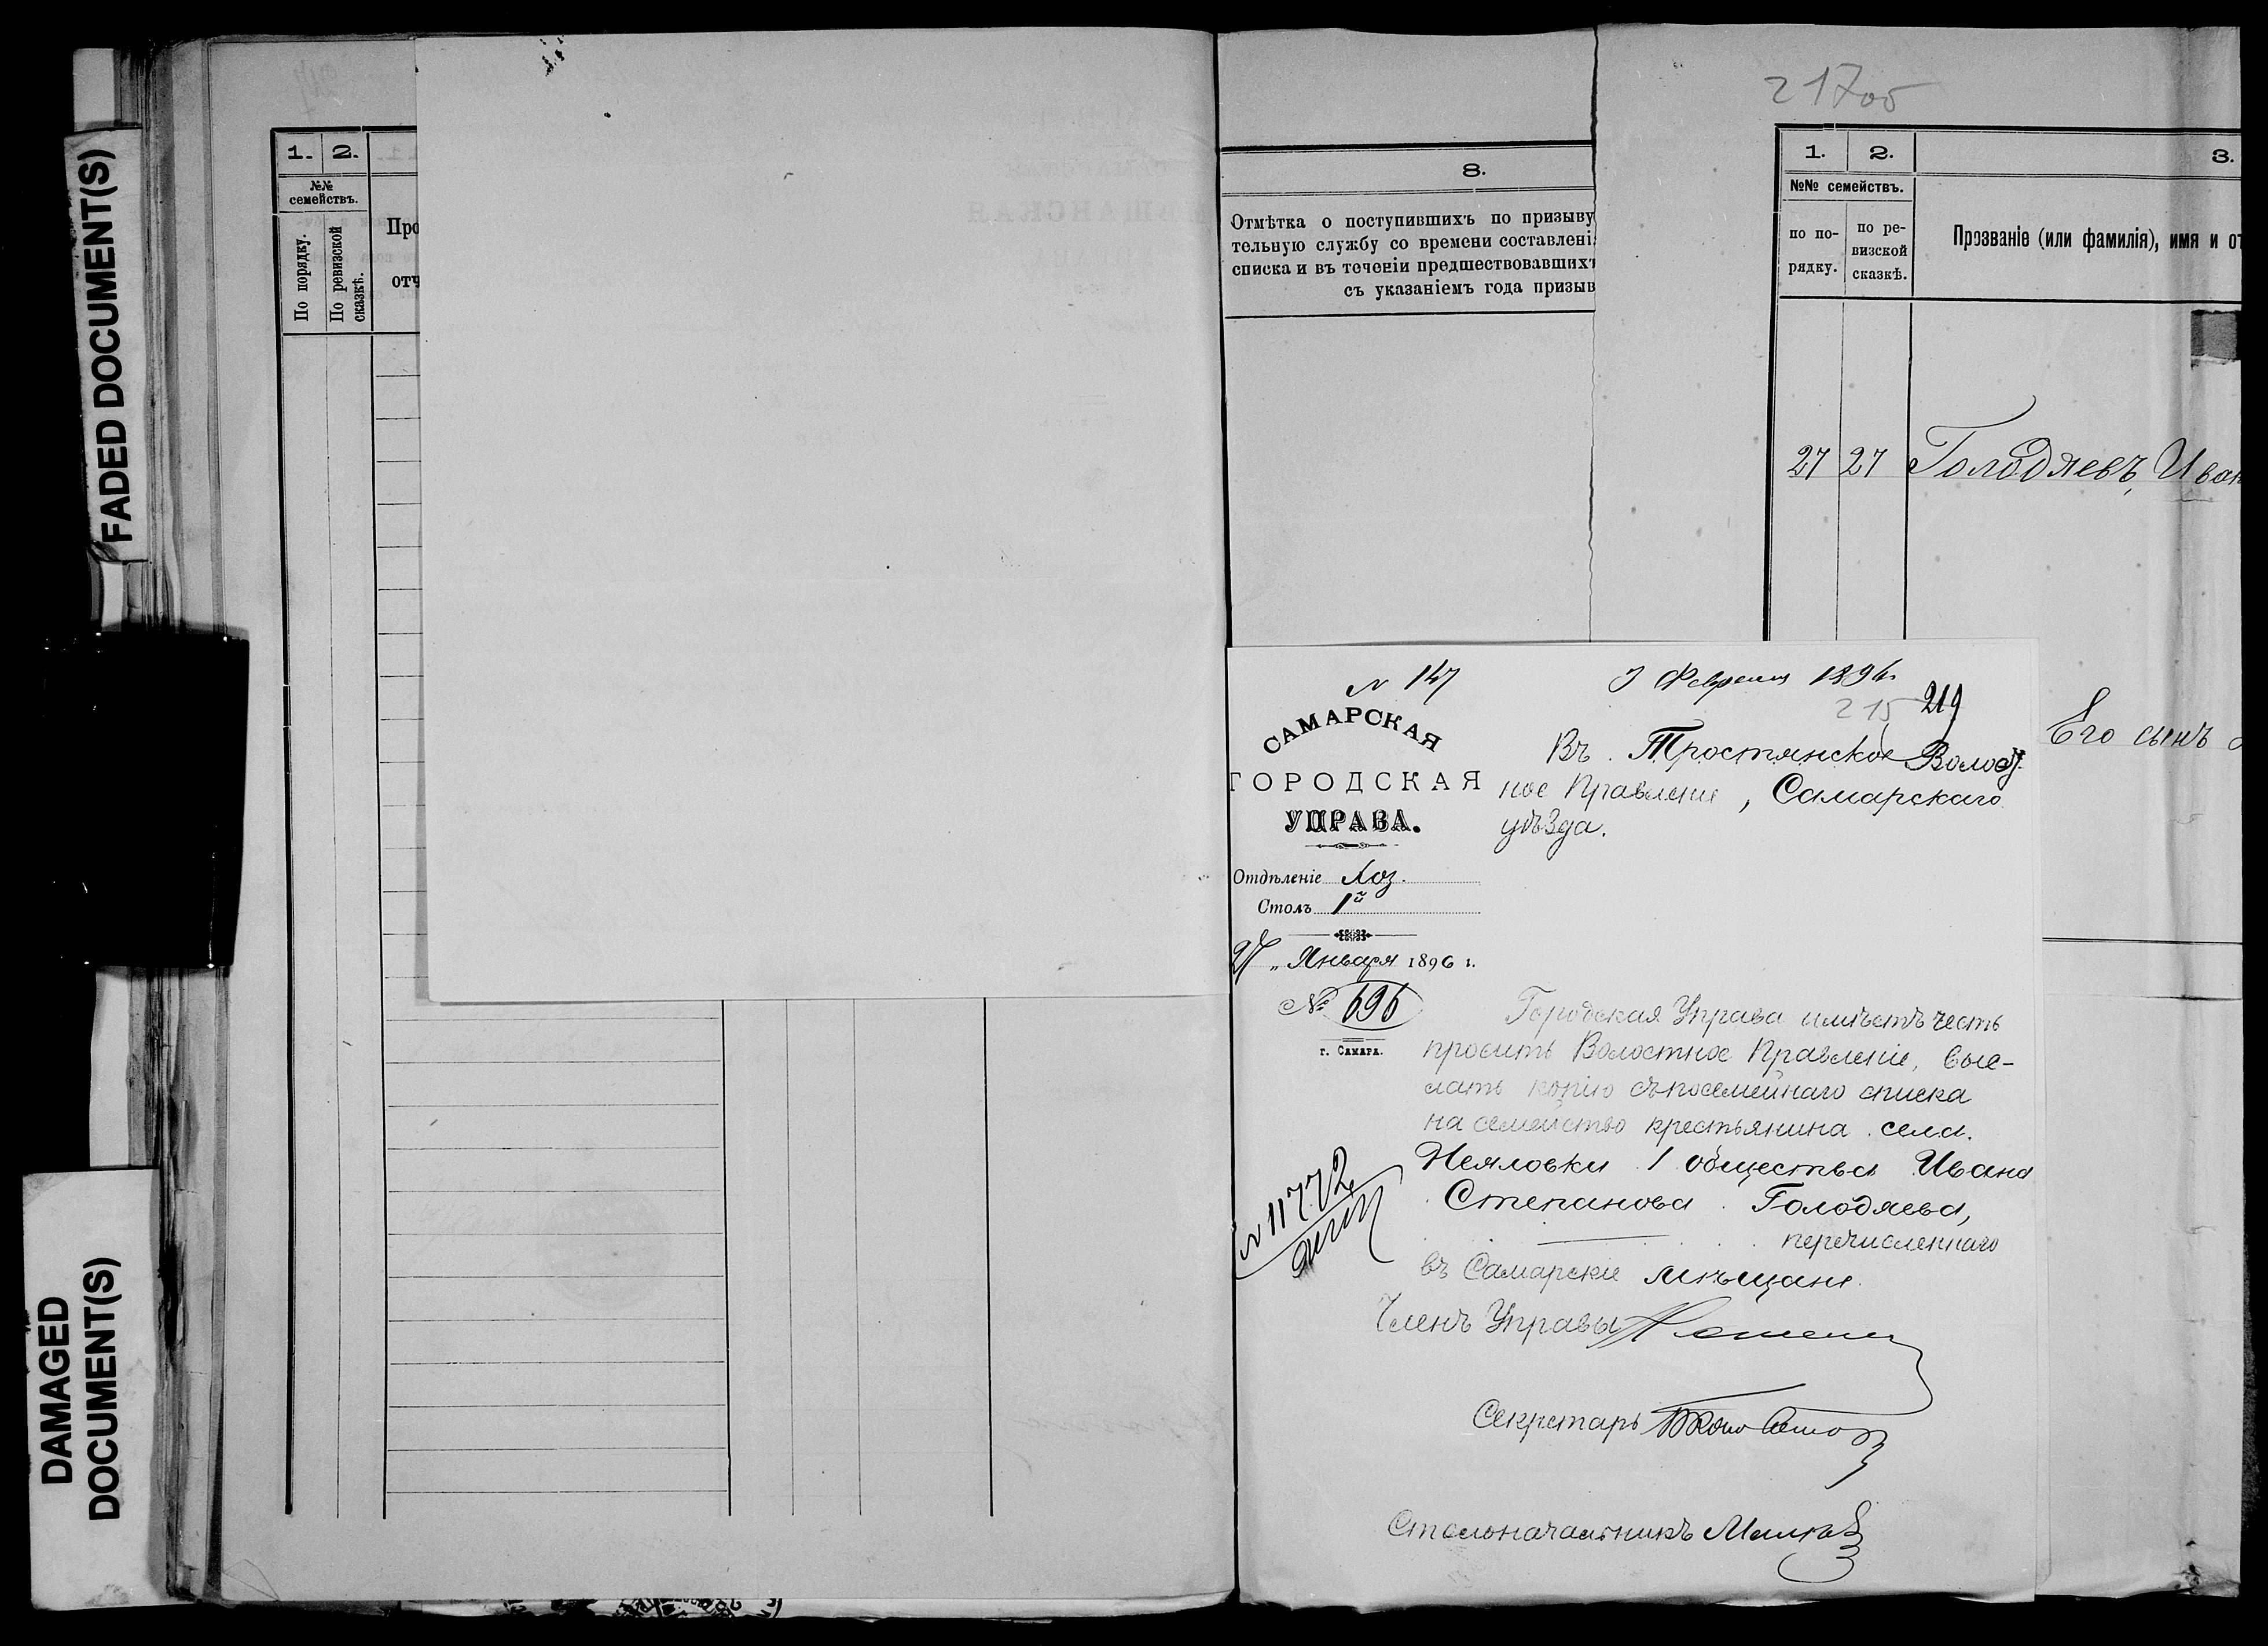 FADED DOCUMENT(S)
DAMAGED
DOCUMENT(S)
1. 2.
№№
семействъ.
По порядку.
По ревизской
сказкѣ.
Про
отч
8.
Отмѣтка о поступившихъ по призыву
тельную службу со времени составлені
списка и въ теченіи предшествовавшихъ
съ указаніемъ года призыв
217об
1. 2. 3.
№№ семействъ.
по по-
рядку.
по ре-
визской
сказкѣ.
Прозваніе (или фамилія), имя и от
27 27 Голодяевъ, Иван
Его сынъ
N 147
3 Февраля 1896
215 219
САМАРСКАЯ
ГОРОДСКАЯ
УПРАВА.
Отдѣленіе Хоз.
Столъ 1й
27 „ Января 1896 г.
№ 696
г. Самара.
Въ Тростянское Волост
ное Правленіе, Самарскаго
уѣзда.
Городская Управа имѣетъ честь
просить Волостное Правленіе, выс-
лать копію съ посемейнаго списка
на семейство крестьянина села.
Неяловки 1 общества Ивана
Степанова Голодяева,
перечисленнаго
въ Самарскіе мѣщане.
N 11772
Членъ Управы
Секретарь
Столоначальникъ